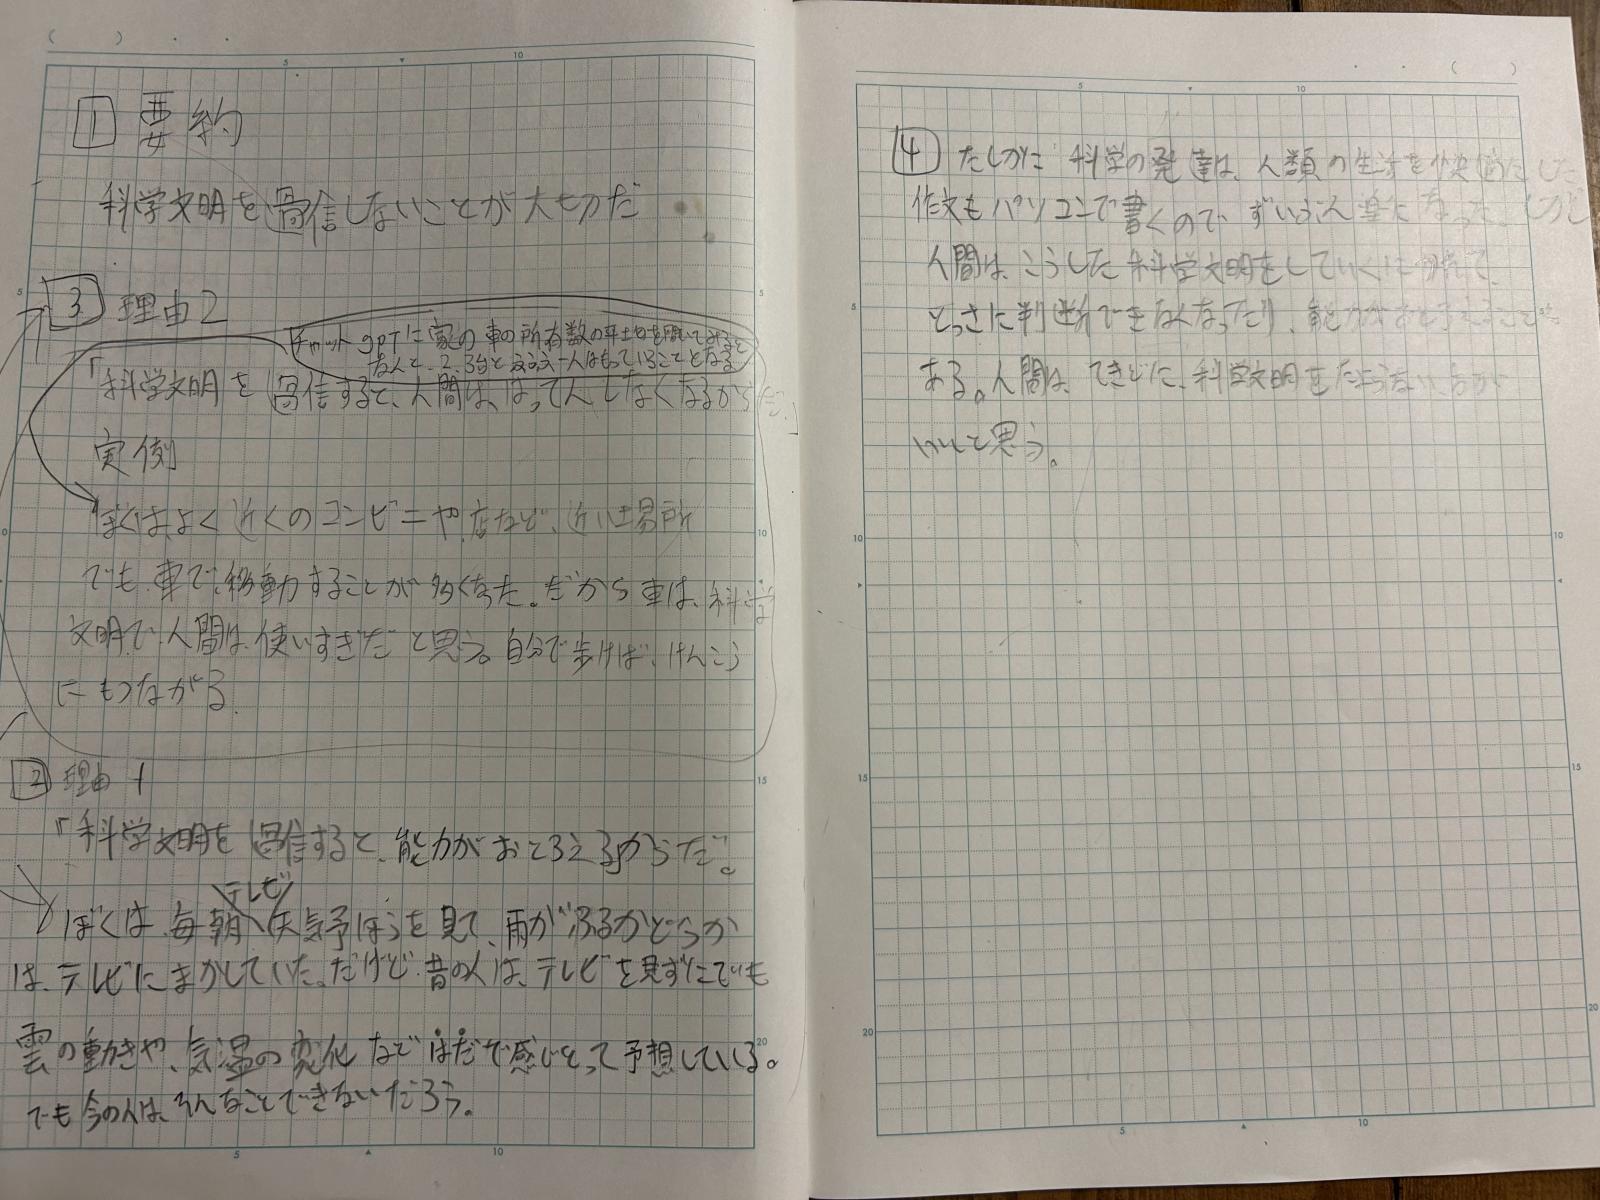 1 要約
科学文明を過信しないことが大切だ
3 理由2
チャットgptに家の車の所有数の平均を聞いてみると
なんと、2、3台と 一人はもっていることとなる
「科学文明を過信すると、人間は、はってんしなくなるからだ。」
実例
ぼくは、よく近くのコンビニや、店など、近い場所
でも、車で、移動することが多くなった。だから車は、科学
文明で、人間は、使いすぎだと思う。自分で歩けば、けんこう
にもつながる。
2 理由1
「科学文明を過信すると、能力がおとろえるからだ。
テレビ
ぼくは、毎朝、天気予ほうを見て、雨がふるかどうか
は、テレビにまかしていた。だけど、昔の人は、テレビを見ずにでも
雲の動きや、気温の変化などはだで感じとって予想している。
でも今の人は、そんなことできないだろう。
4 たしかに、科学の発達は、人類の生活を快適にした
作文もパソコンで書くので、ずいぶん楽になった。しかし
人間は、こうした科学文明をしていくにつれて、
とっさに判断できなくなったり、能力がおとろえること
ある。人間は、てきどに、科学文明をたよらないほうが
いいと思う。